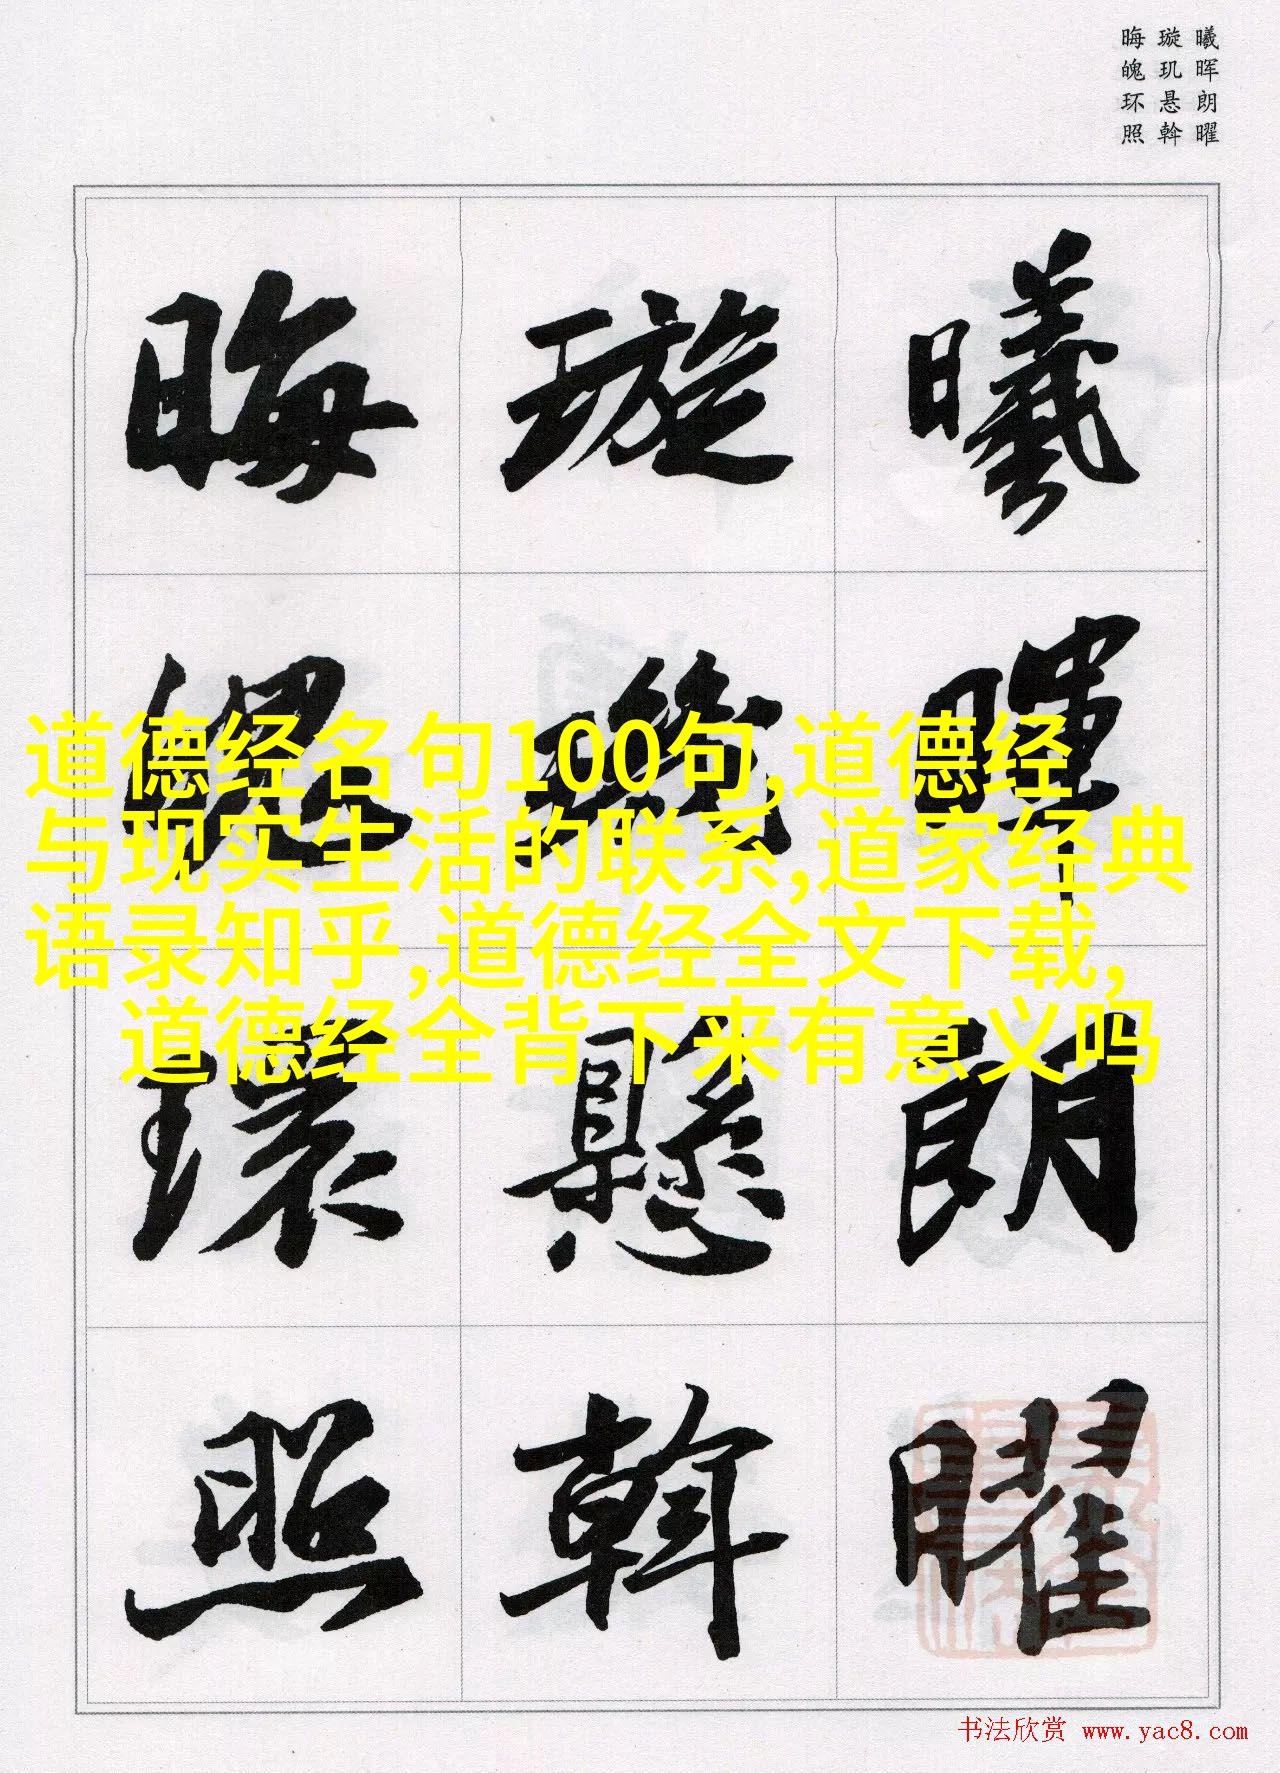 曦晖朗曜
璇玑悬斡
晦魄环照
曦暉朗曜
璇璣懸斡
晦魄環照
道德经名句100句,道德经
与现实生活的联系,道家经典
语录知乎,道德经全文下载,
道德经全背下来有意义吗
书法欣赏 www.yac8.com